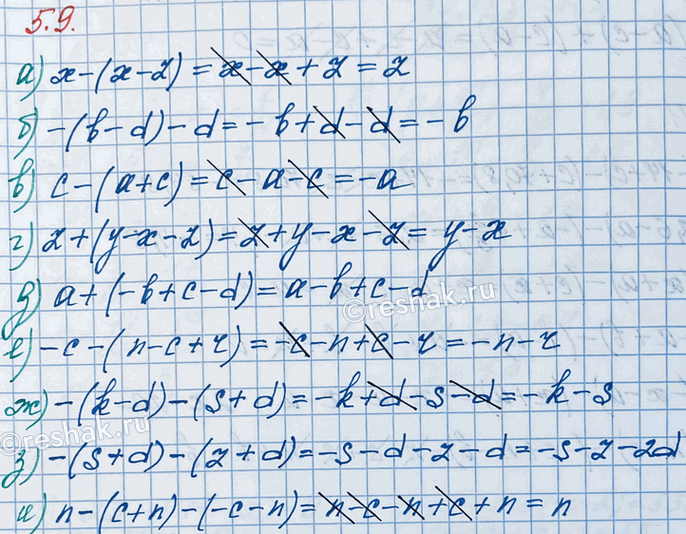 5.9.
а) x-(x-z) = x-x+z = z
б) -(b-d)-d = -b+d-d = -b
в) c-(a+c) = c-a-c = -a
г) z+(y-x-z) = z+y-x-z = y-x
д) a+(-b+c-d) = a-b+c-d
е) -c-(n-c+r) = -c-n+c-r = -n-r
ж) -(k-d)-(s+d) = -k+d-s-d = -k-s
з) -(s+d)-(z+d) = -s-d-z-d = -s-z-2d
и) n-(c+n)-(-c-n) = n-c-n+c+n = n
©reshak.ru
©reshak.ru